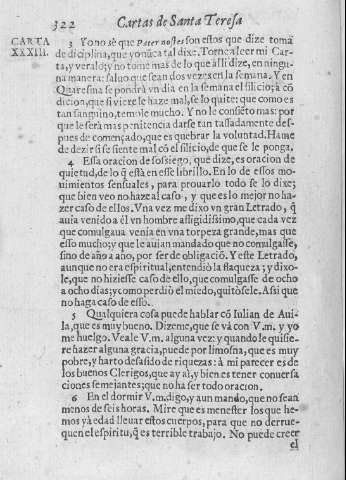 322 Cartas de Santa Teresa
CARTA
XXXIII.
3 Yo no sè que Pater nostes son estos que dize toma
de diciplina, que yo nũca tal dixe. Torne a leer mi Car-
ta, y veralo: y no tome mas de lo que alli dize, en ningu-
na manera: saluo que sean dos vezes en la semana. Y en
Quaresma se pondrà vn dia en la semana el silicio; à cõ
dicion, que si viere le haze mal, se lo quite: que como es
tan sanguino, temole mucho. Y no le consiẽto mas: por
que le serà mas penitencia darse tan tassadamente des-
pues de començado, que es quebrar la voluntad. Hame
de dezir si se siente mal cõ el silicio, de que se le ponga.
4 Essa oracion de sossiego, que dize, es oracion de
quietud, de lo q̃ està en esse librillo. En lo de essos mo-
uimientos sensuales, para prouarlo todo se lo dixe;
que bien veo no haze al caso, y que es lo mejor no ha-
zer caso de ellos. Vna vez me dixo vn gran Letrado, q̃
auia venido a èl vn hombre afligidissimo, que cada vez
que comulgaua venia en vna torpeza grande, mas que
esso mucho; y que le auian mandado que no comulgasse,
sino de año a año, por ser de obligaciõ. Y este Letrado,
aunque no era espiritual, entendiò la flaqueza; y dixo-
le, que no hiziesse caso de ello, que comulgasse de ocho
a ocho dias; y como perdiò el miedo, quitòsele. Assi que
no haga caso de esso.
5 Qualquiera cosa puede hablar cõ Iulian de Aui-
la, que es muy bueno. Dizeme, que se và con V.m. y yo
me huelgo. Veale V.m. alguna vez: y quando le quisie-
re hazer alguna gracia, puede por limosna, que es muy
pobre, y harto desasido de riquezas: à mi parecer es de
los buenos Clerigos, que ay al, y bien es tener conuersa
ciones semejantes; que no ha ser todo oracion.
6 En el dormir V.m. digo, y aun mando, que no sean
menos de seis horas. Mire que es menester los que he-
mos yà edad lleuar estos cuerpos, para que no derrue-
quen el espiritu, q̃ es terrible trabajo. No puede creer
el